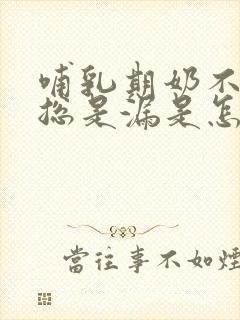 哺乳期奶不
总是漏是怎
當往事不如煙